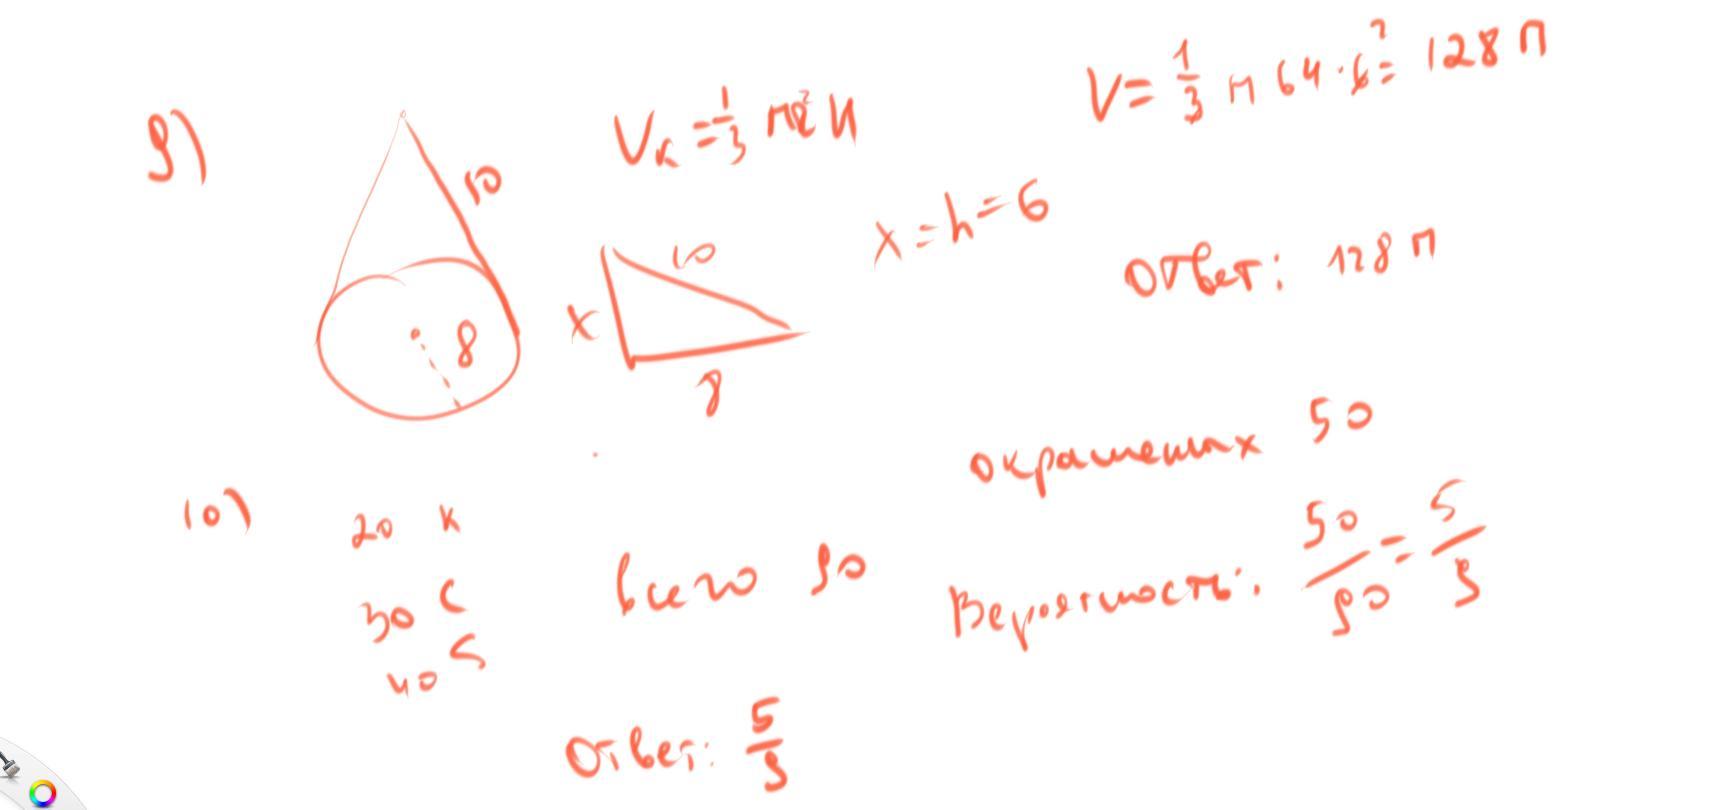 9)
10
8
Vк = 1/3 πR² H
x
10
8
x = h = 6
V = 1/3 π 64 · 6² = 128 π
Ответ: 128 π
10)
20 К
30 С
40 Б
Всего 90
окрашенных 50
Вероятность: 50/90 = 5/9
Ответ: 5/9